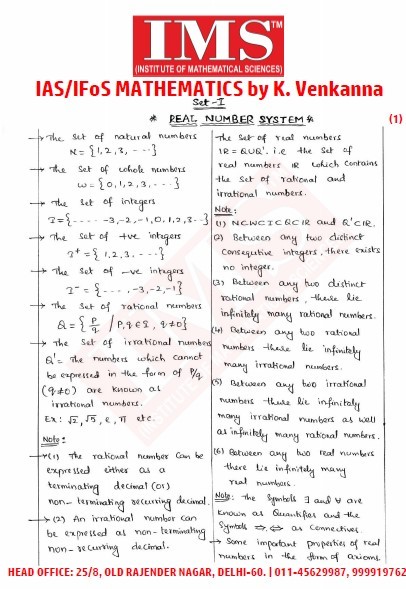 IMS
TM
(INSTITUTE OF MATHEMATICAL SCIENCES)
IAS/IFoS MATHEMATICS by K. Venkanna
Set - I
* REAL NUMBER SYSTEM *
(1)
→ The set of natural numbers
N = {1, 2, 3, ----}
→ The set of whole numbers
W = {0, 1, 2, 3, ----}
→ The set of integers
I = {---- -3, -2, -1, 0, 1, 2, 3--}
→ The set of +ve integers
I⁺ = {1, 2, 3, ----}
→ The set of -ve integers
I⁻ = {---, -3, -2, -1}
→ The set of rational numbers
Q = {p/q / P, q ∈ I, q ≠ 0}
→ The set of irrational numbers
Q' = The numbers which cannot
be expressed in the form of P/q
(q ≠ 0) are known as
irrational numbers.
Ex: √2, √5, e, π etc.
Note:
→ (1) The rational number can be
expressed either as a
terminating decimal (or)
non-terminating recurring decimal.
→ (2) An irrational number can
be expressed as non-terminating
non-recurring decimal.
The set of real numbers
IR = Q∪Q'. i.e the set of
real numbers IR which contains
the set of rational and
irrational numbers.
Note:
(1) N⊂W⊂I⊂Q⊂IR and Q'⊂IR.
(2) Between any two distinct
Consequtive integers, there exists
no integer.
(3) Between any two distinct
rational numbers, there lie
infinitely many rational numbers.
(4) Between any two rational
numbers there lie infinitely
many irrational numbers.
(5) Between any two irrational
numbers there lie infinitely
many irrational numbers as well
as infinitely many rational numbers.
(6) Between any two real numbers
there lie infinitely many
real numbers.
Note: The symbols ∃ and ∀ are
known as Quantifies and the
Symbols ⇒, ⇔ as connectives
→ Some important properties of real
numbers in the form of axioms
HEAD OFFICE: 25/8, OLD RAJENDER NAGAR, DELHI-60. | 011-45629987, 999919762